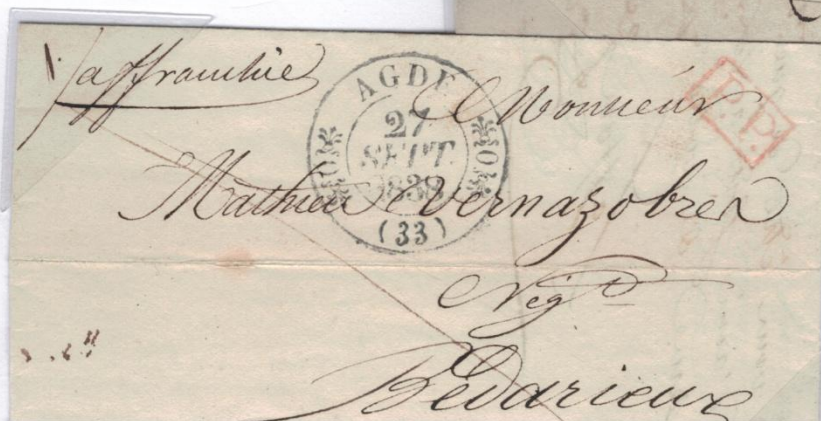 affranchie
AGDE
27
SEPT.
1838
(33)
P.P.
Monsieur
Mathieu Vernazobres
Négt
Bédarieux